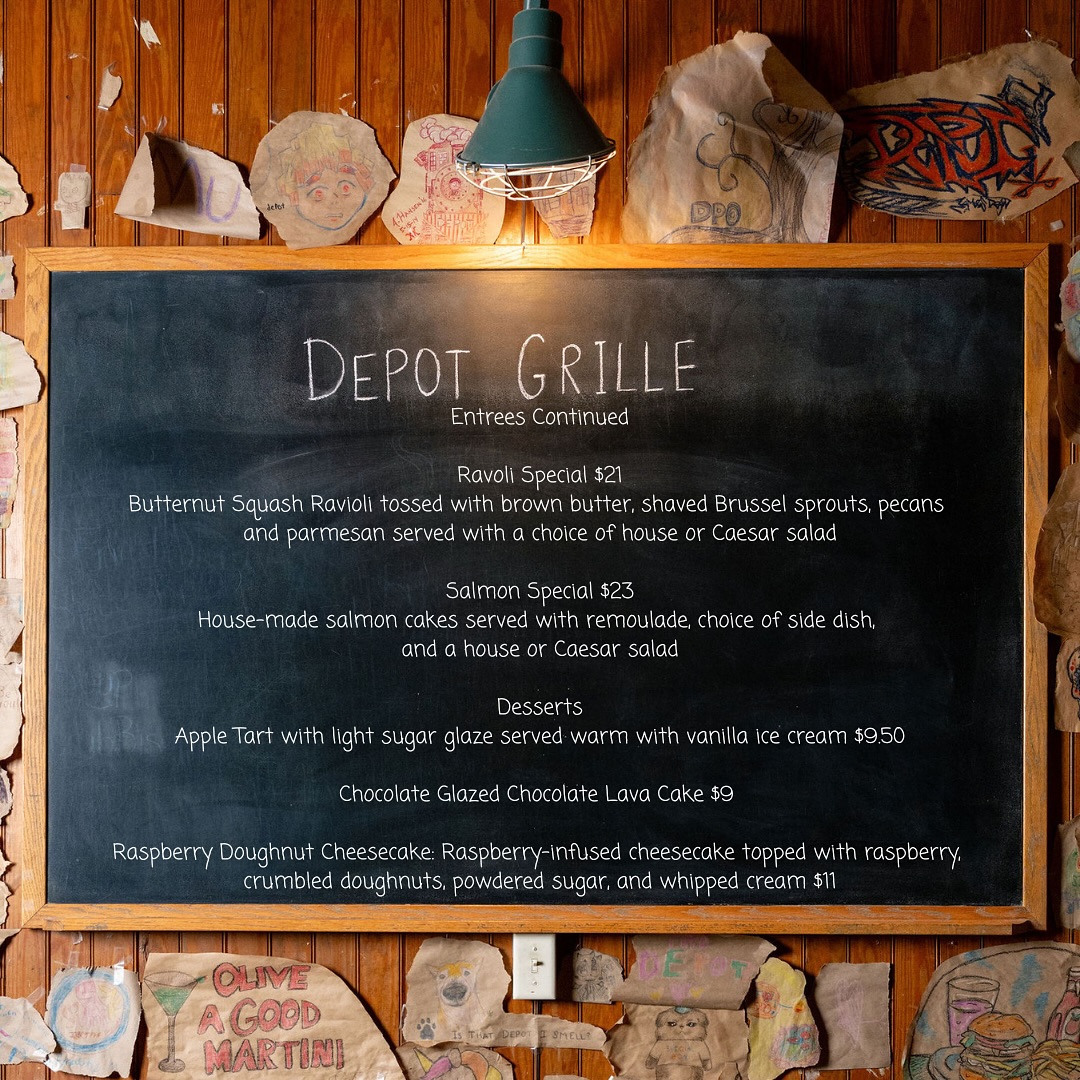 depot
DPO
DEPOT
DEPOT GRILLE
Entrees Continued
Ravoli Special $21
Butternut Squash Ravioli tossed with brown butter, shaved Brussel sprouts, pecans
and parmesan served with a choice of house or Caesar salad
Salmon Special $23
House-made salmon cakes served with remoulade, choice of side dish,
and a house or Caesar salad
Desserts
Apple Tart with light sugar glaze served warm with vanilla ice cream $9.50
Chocolate Glazed Chocolate Lava Cake $9
Raspberry Doughnut Cheesecake: Raspberry-infused cheesecake topped with raspberry,
crumbled doughnuts, powdered sugar, and whipped cream $11
OLIVE
A GOOD
MARTINI
DEPOT
IS THAT DEPOT I SMELL?